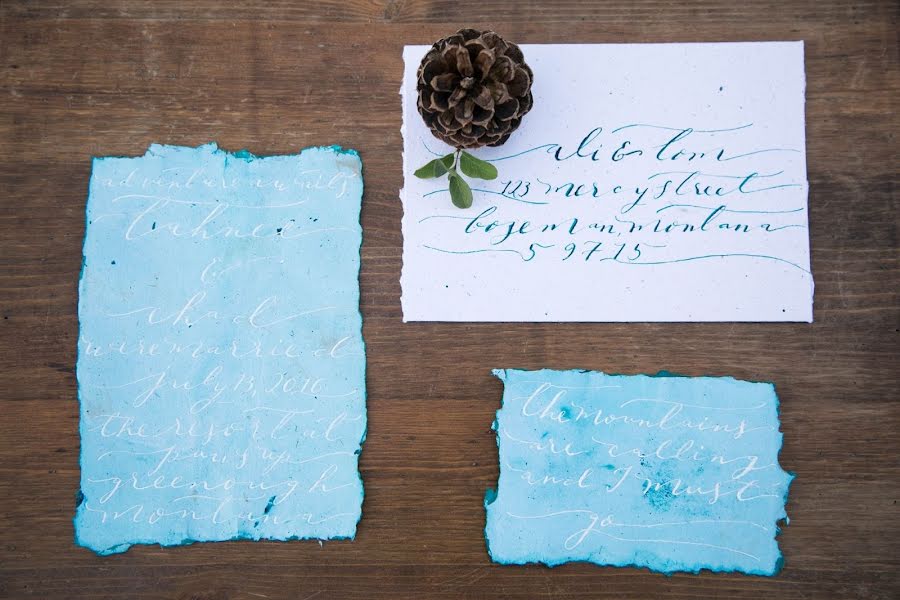 adventure awaits
tahnee
&
chad
were married
july 13, 2016
the resort at
paws up
greenough
montana
ali & tom
123 mercy street
bozeman, montana
59715
the mountains
are calling
and I must
go